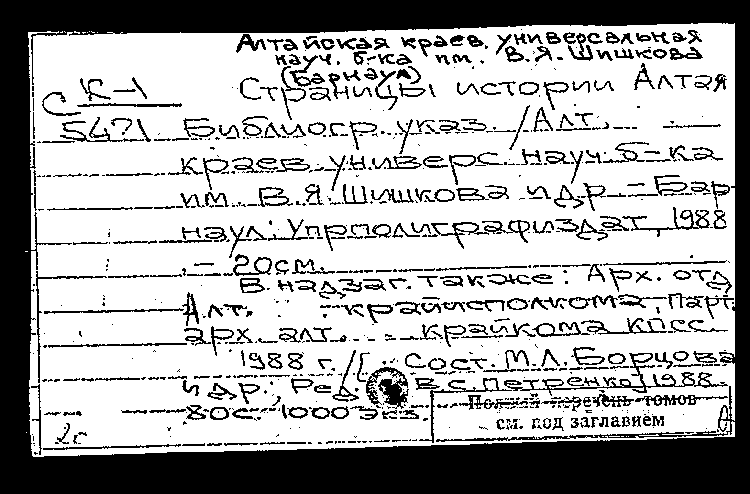 Алтайская краев. универсальная
науч. б-ка им. В.Я. Шишкова
(Барнаул)
С К-1
5471
Страницы истории Алтая
Библиогр. указ. / Алт.
краев. универс. науч. б-ка
им. В.Я. Шишкова и др. – Бар-
наул: Упрполиграфиздат, 1988
. – 20см.
В надзаг. также: Арх. отд
Алт. крайисполкома, Парт.
арх. алт. крайкома КПСС.
1988 г. / [ Сост. М.Л. Борцова
и др.; Ред. В.С. Петренко] 1988.
80с. 1000 экз.
Полный перечень томов
см. под заглавием
2г